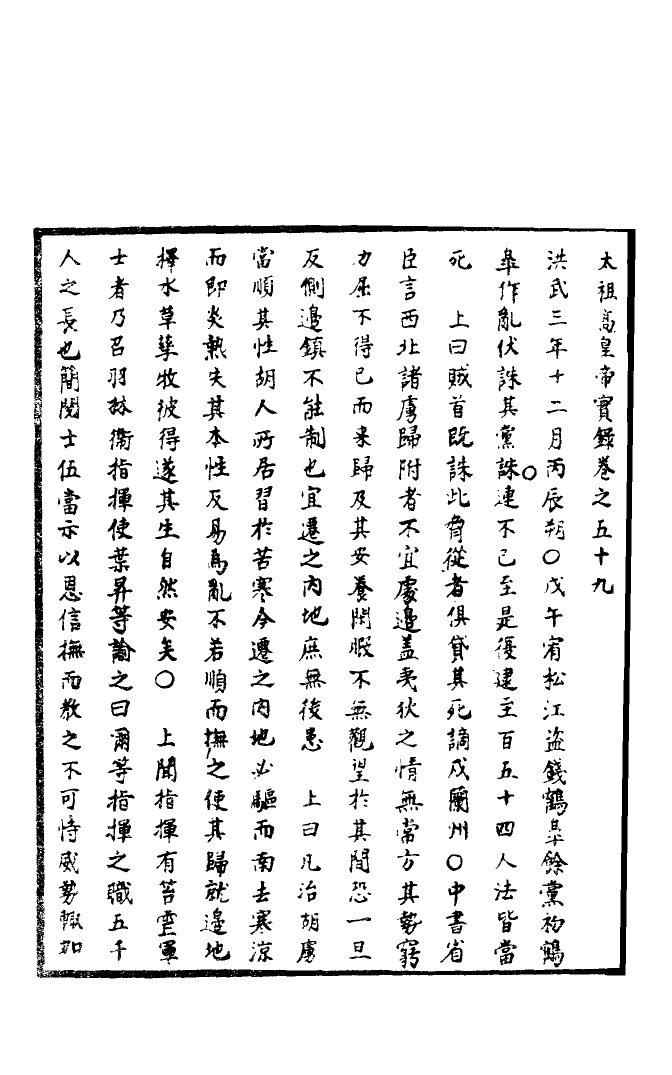 太祖高皇帝實錄卷之五十九
洪武三年十二月丙辰朔○戊午宥松江盜錢鶴皋餘黨初鶴
皋作亂伏誅其黨誅連不已至是復逮至百五十四人法皆當
死　上曰賊首既誅此脅從者俱貸其死謫戍蘭州○中書省
臣言西北諸虜歸附者不宜處邊盖夷狄之情無常方其勢窮
力屈不得已而来歸及其安養閒暇不無觀望於其間恐一旦
反側邊鎮不能制也宜遷之內地庶無後患　上曰凡治胡虜
當順其性胡人所居習於苦寒今遷之內地必驅而南去寒涼
而即炎熱失其本性反易爲亂不若順而撫之使其歸就邊地
擇水草孳牧彼得遂其生自然安矣○　上聞指揮有笞虐軍
士者乃召羽林衞指揮使葉昇等諭之曰爾等指揮之職五千
人之長也簡閱士伍當示以恩信撫而教之不可恃威勢輙加